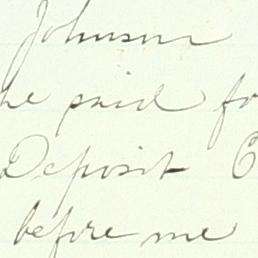 Johnson
he said fo
Deposit C
before me